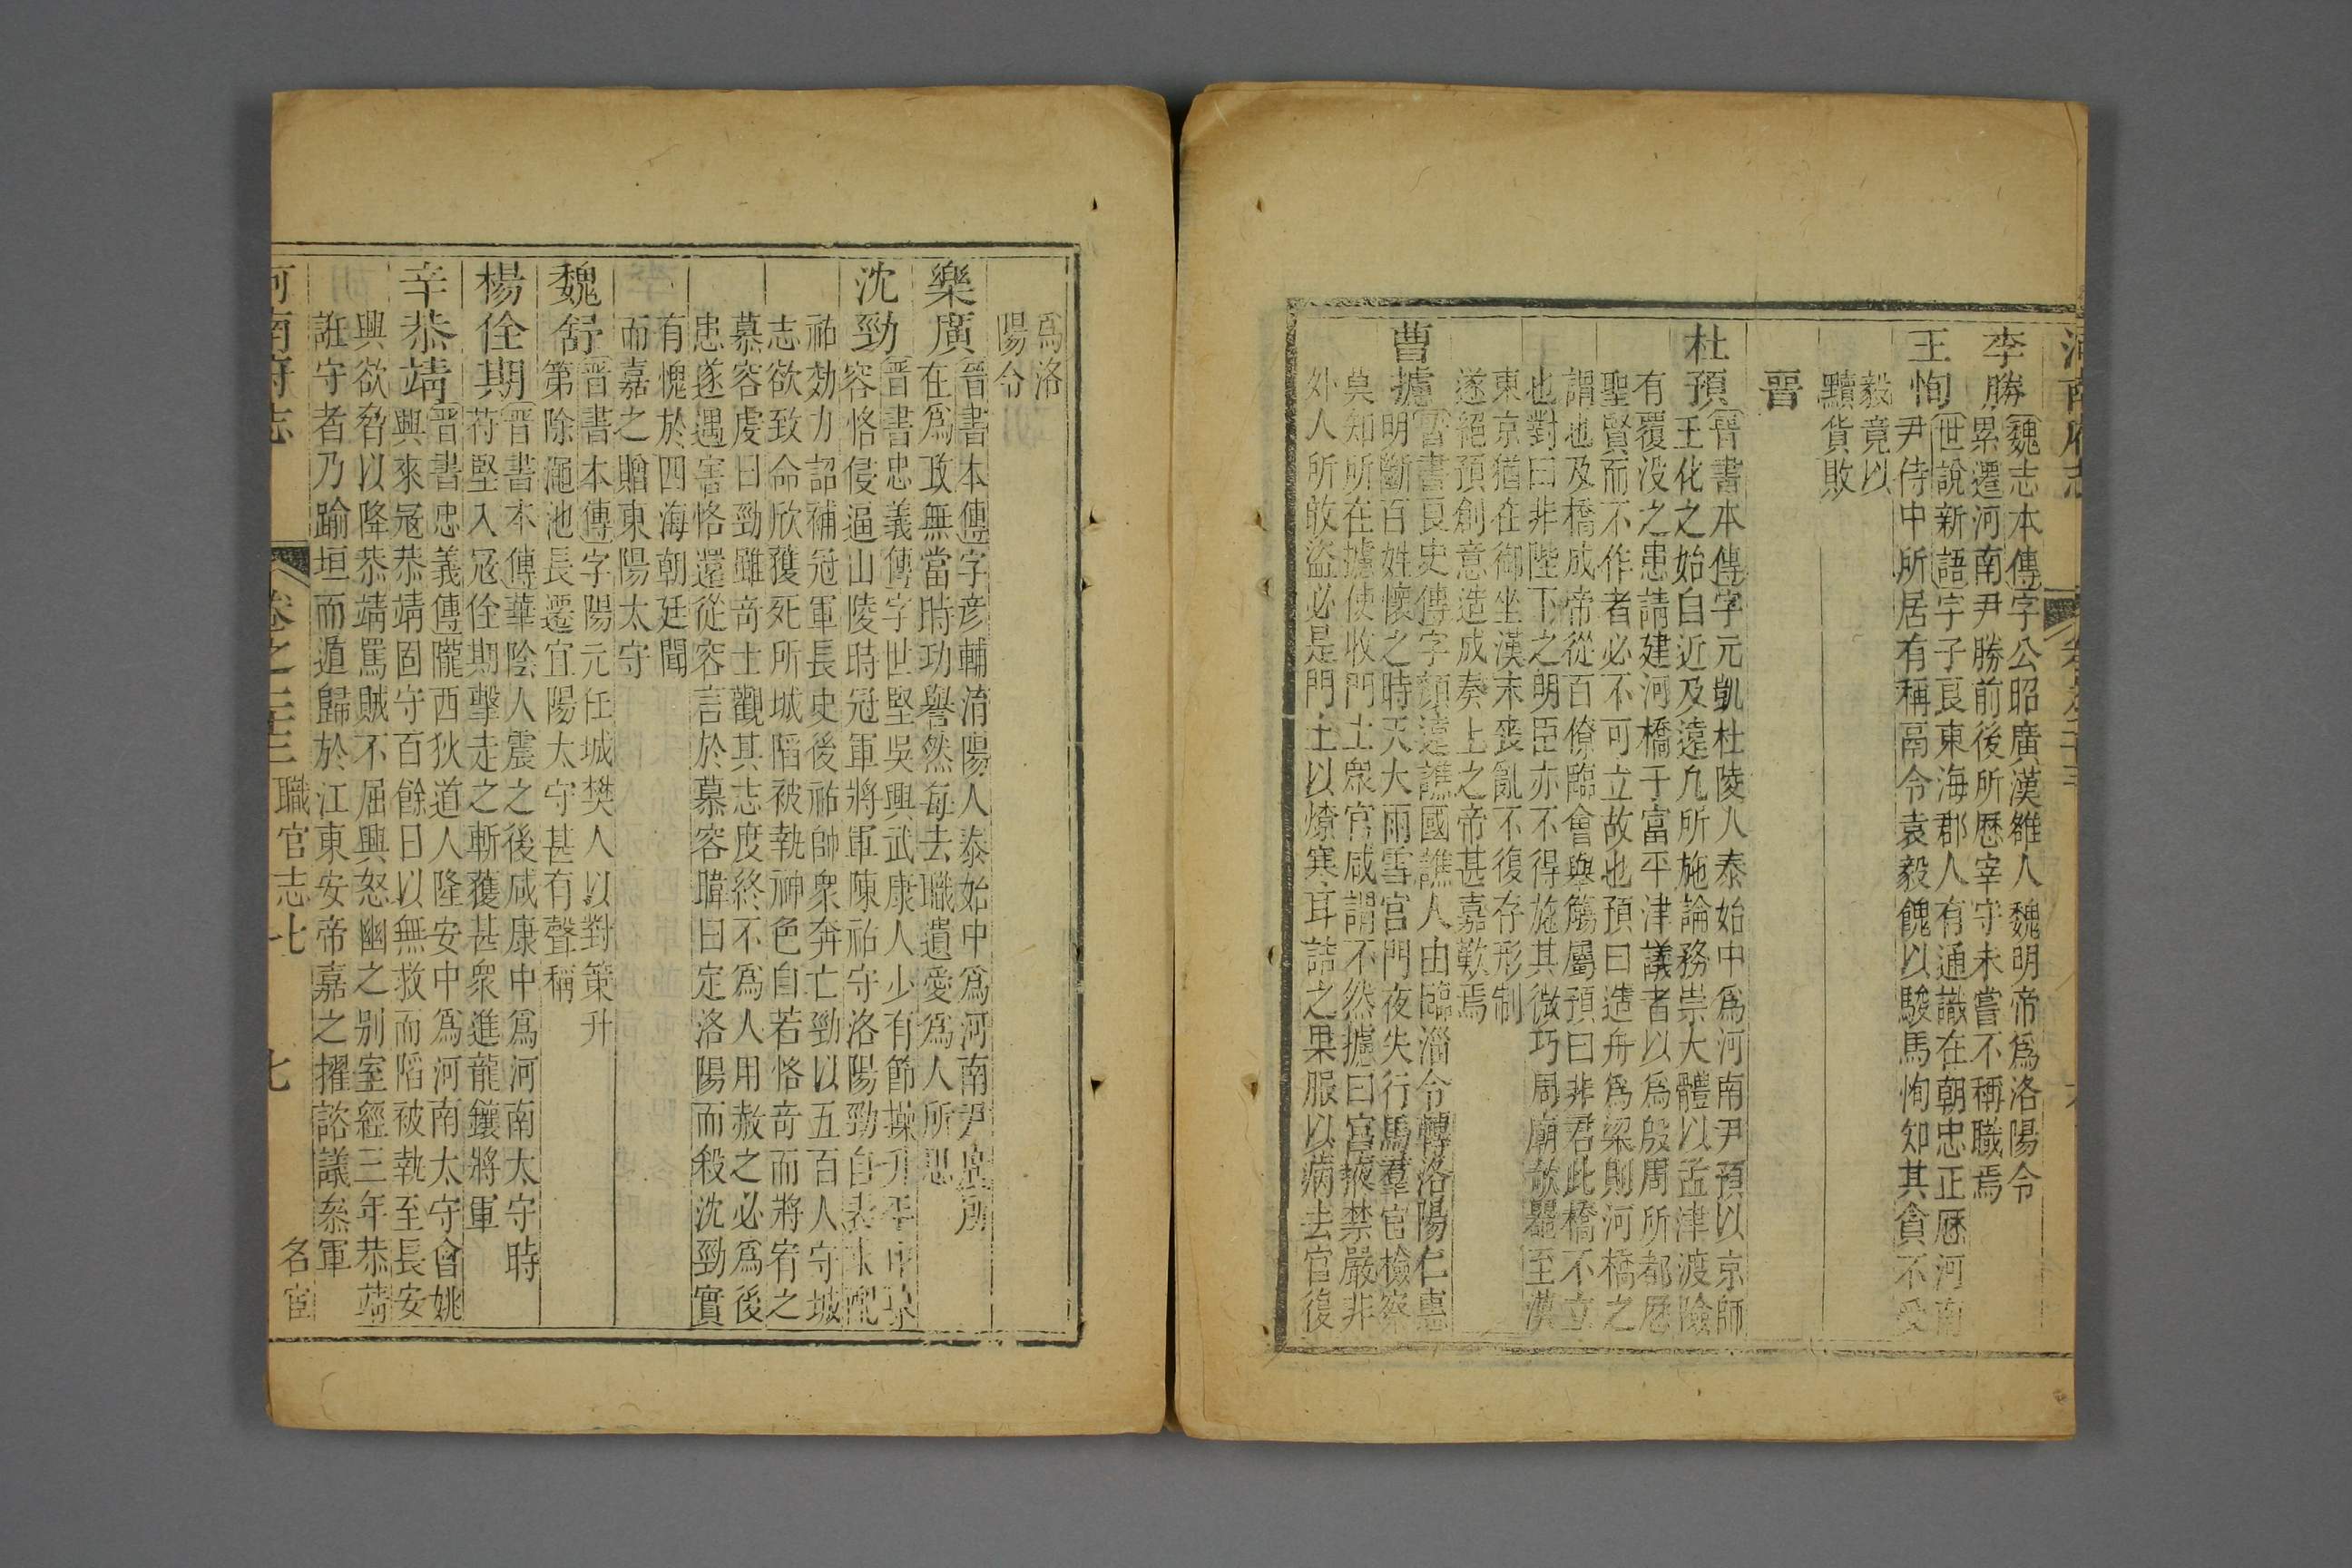 李勝魏志本傳字公昭廣漢雒人魏明帝爲洛陽令
累遷河南尹勝前後所歷宰守未嘗不稱職焉
王恂世說新語字子良東海郡人有通識在朝忠正歷河南
尹侍中所居有稱鬲令袁毅餽以駿馬恂知其貪不受
毅竟以
黷貨敗
晉
杜預晉書本傳字元凱杜陵人泰始中爲河南尹預以京師
王化之始自近及遠凢所施論務崇大體以孟津渡險
有覆没之患請建河橋于富平津議者以爲殷周所都歷
聖賢而不作者必不可立故也預曰造舟爲梁則河橋之
謂也及橋成帝從百僚臨會舉觴屬預曰非君此橋不立
也對曰非陛下之明臣亦不得施其微巧周廟欹器至漢
東京猶在御坐漢末喪亂不復存形制
遂絕預創意造成奏上之帝甚嘉歎焉
曹攄晉書良史傳字顏遠譙國譙人由臨淄令轉洛陽仁惠
明斷百姓懷之時天大雨雪宮門夜失行馬羣官檢察
莫知所在攄使收門士衆官咸謂不然攄曰宮掖禁嚴非
外人所敢盜必是門士以燎寒耳詰之果服以病去官復
爲洛
陽令
樂廣晉書本傳字彥輔淯陽人泰始中爲河南尹廣所
在爲政無當時功譽然每去職遺愛爲人所思
沈勁晉書忠義傳字世堅吳興武康人少有節操升平中慕
容恪侵逼山陵時冠軍將軍陳祐守洛陽勁自表求配
祐効力詔補冠軍長史後祐帥衆奔亡勁以五百人守城
志欲致命欣獲死所城陷被執神色自若恪奇而將宥之
慕容虔曰勁雖奇士觀其志度終不爲人用赦之必爲後
患遂遇害恪還從容言於慕容暐曰定洛陽而殺沈勁實
有愧於四海朝廷聞
而嘉之贈東陽太守
魏舒晉書本傳字陽元任城樊人以對策升
第除澠池長遷宜陽太守甚有聲稱
楊佺期晉書本傳華陰人震之後咸康中爲河南太守時
苻堅入冦佺期擊走之斬獲甚衆進龍鑲將軍
辛恭靖晉書忠義傳隴西狄道人隆安中爲河南太守會姚
興來冦恭靖固守百餘日以無救而陷被執至長安
興欲脅以降恭靖罵賊不屈興怒幽之别室經三年恭靖
誑守者乃踰垣而遁歸於江東安帝嘉之擢諮議叅軍
河南府志 卷之三十三 職官志七 七 名宦